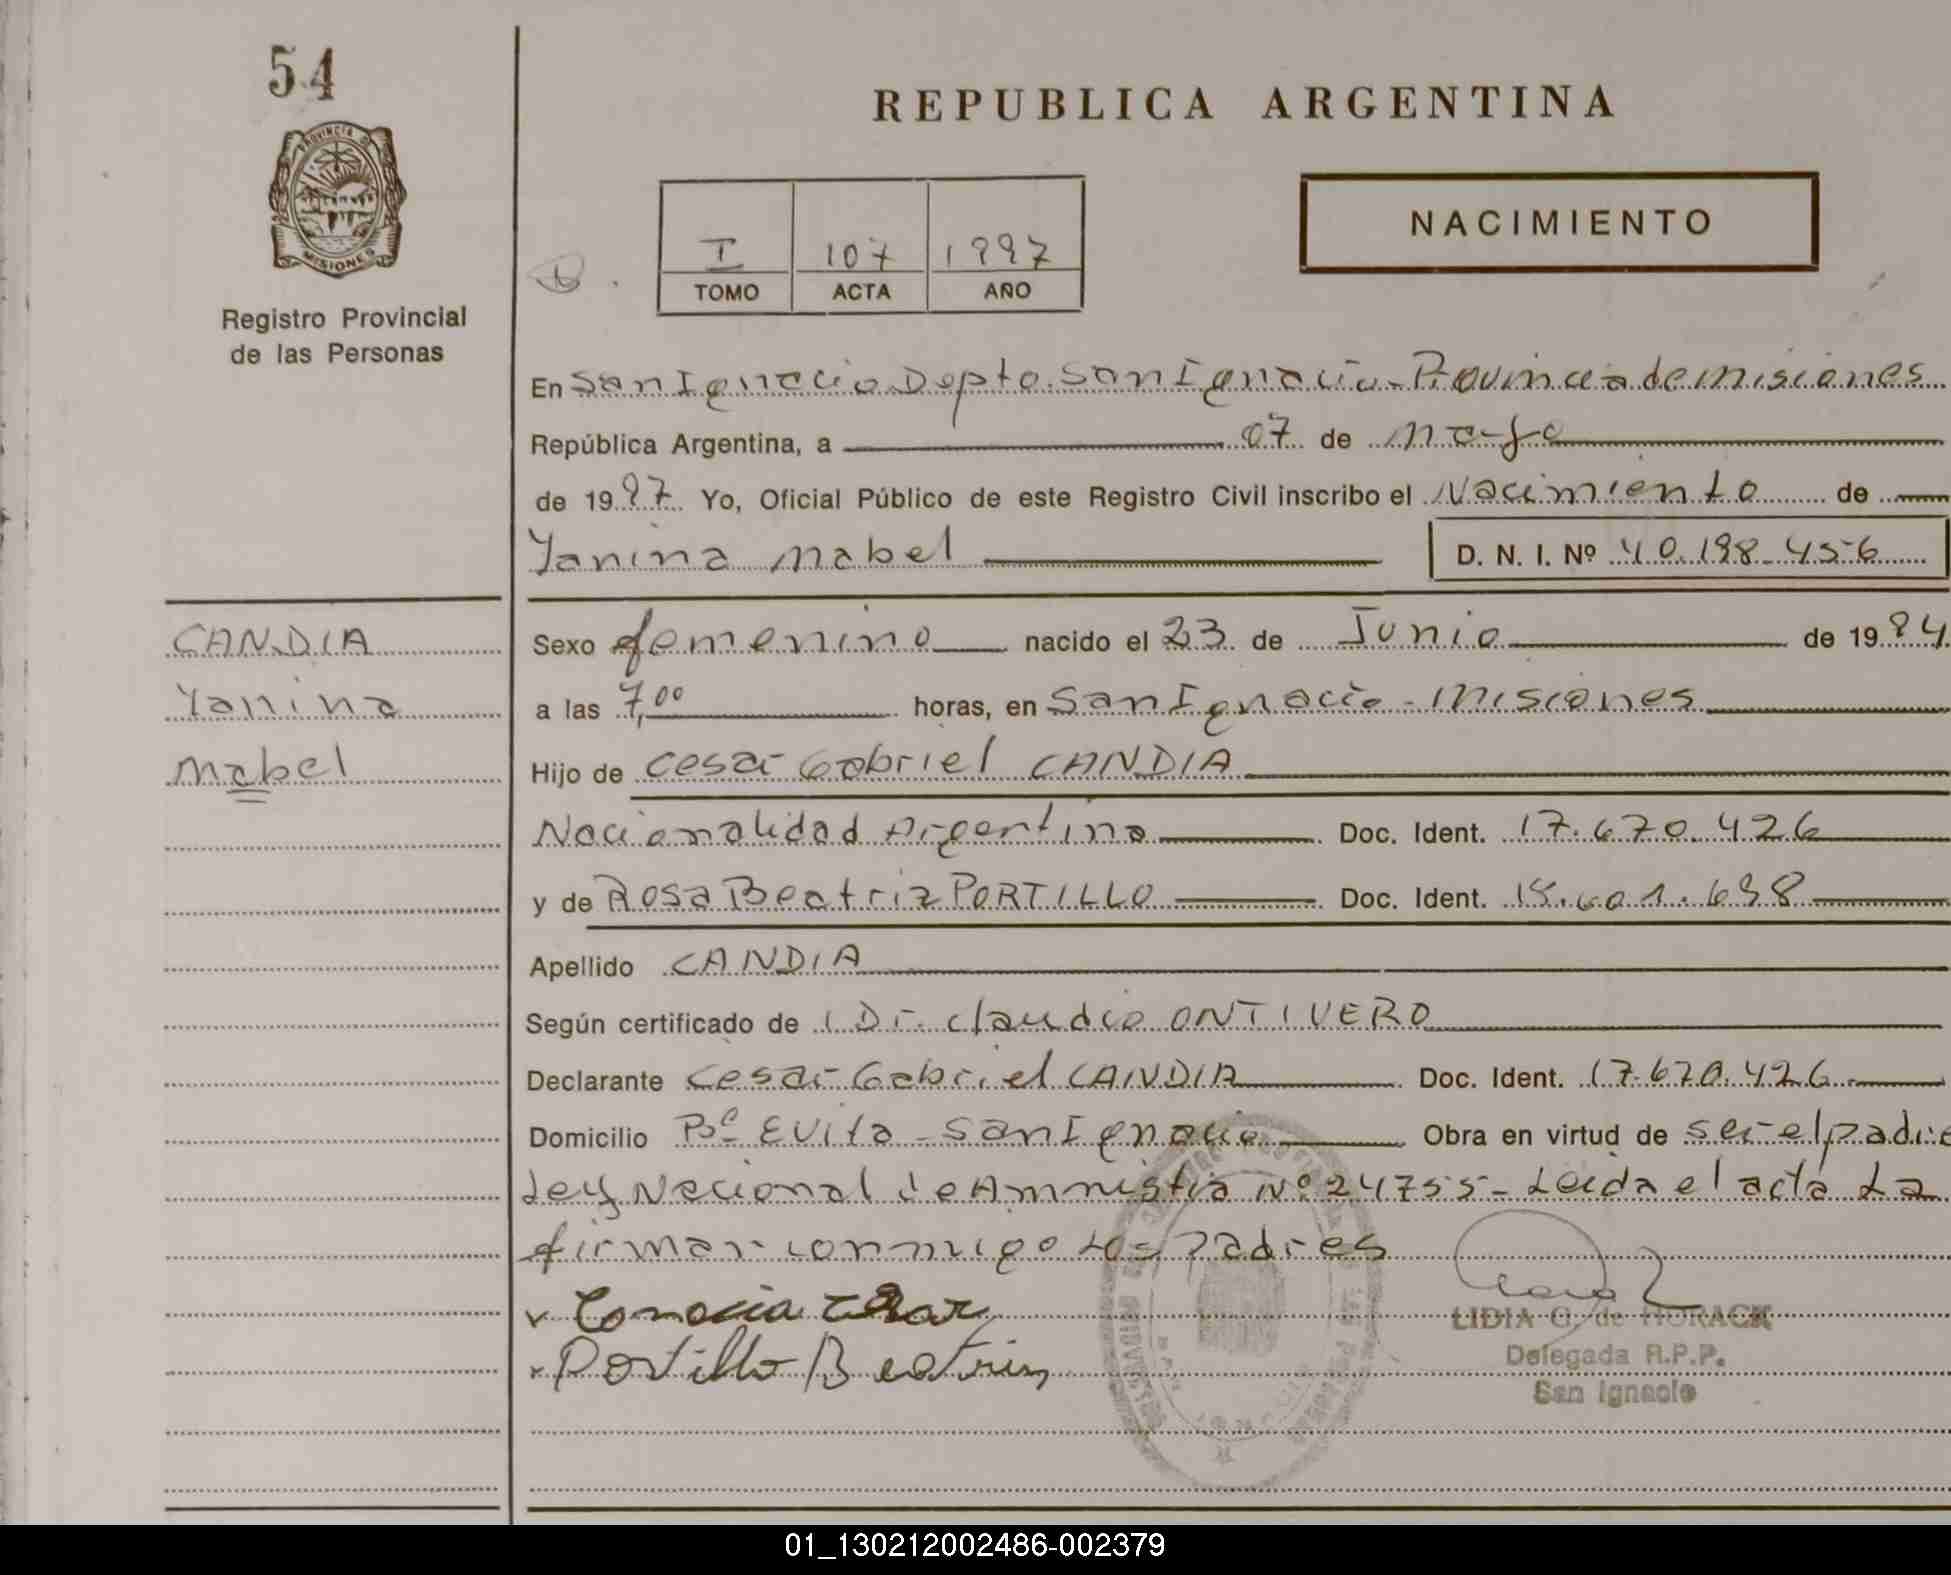 54
PROVINCIA DE
MISIONES
Registro Provincial
de las Personas
REPUBLICA ARGENTINA
NACIMIENTO
I 107 1997
TOMO ACTA AÑO
En San Ignacio Depto. San Ignacio - Provincia de misiones
República Argentina, a 07 de Mayo
de 1997 Yo, Oficial Público de este Registro Civil inscribo el Nacimiento de
Yanina Mabel D. N. I. Nº 40.198.456
CANDIA
Yanina
Mabel
Sexo femenino nacido el 23 de Junio de 1994
a las 7,00 horas, en San Ignacio - Misiones
Hijo de Cesar Gabriel CANDIA
Nacionalidad Argentina Doc. Ident. 17.670.426
y de Rosa Beatriz PORTILLO Doc. Ident. .601.698
Apellido CANDIA
Según certificado de Dr. Claudio ONTIVERO
Declarante Cesar Gabriel CANDIA Doc. Ident. 17.670.426
Domicilio Bº Evita - San Ignacio Obra en virtud de ser el padre
Ley Nacional de Amnistia Nº 24755 - Leida el acta La
firman conmigo los Padres
Portillo Beatriz
LIDIA G. de HORACK
Delegada R.P.P.
San Ignacio
01_130212002486-002379